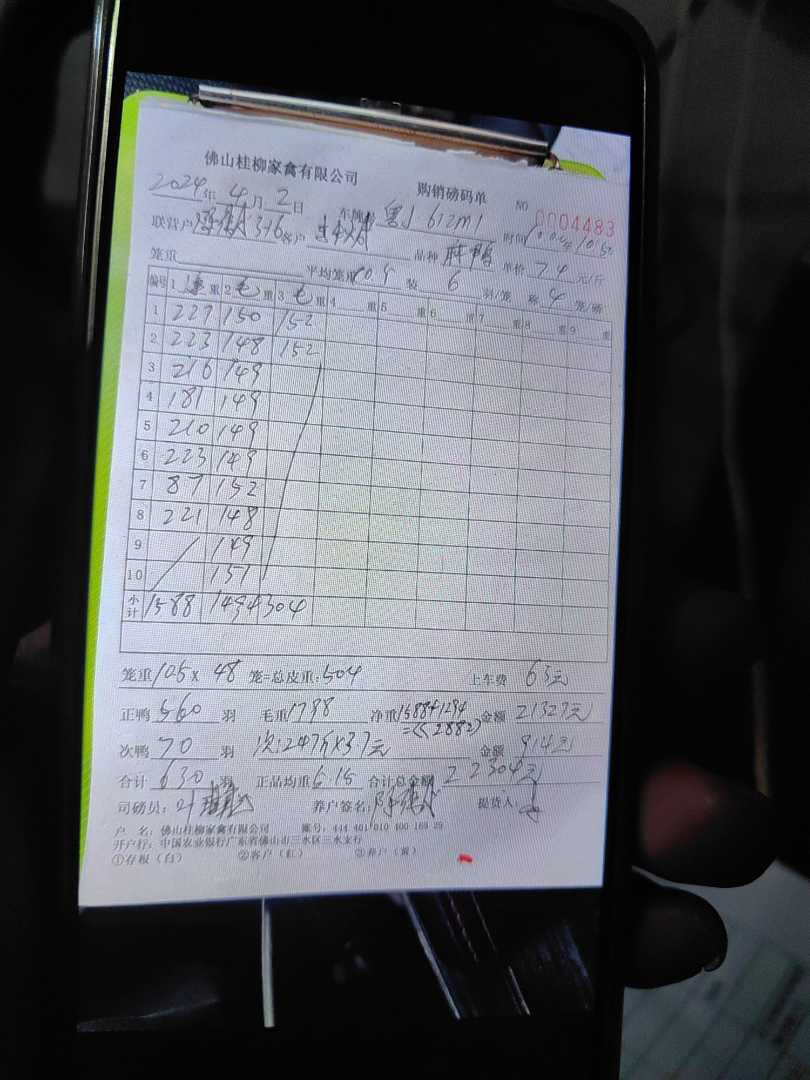 佛山桂柳家禽有限公司 购销磅码单
2024年4月2日 车牌 粤J 612M1 NO 0004483
联营户 316 客户 品种 胖鸭 时间
笼重 平均笼重 10.5 装 6 羽/笼 称 4 笼/磅 单价 7.4 元/斤
编号 1 重 2 毛 重 3 毛 重 4 重 5 重 6 重 7 重 8 重 9 重
1 227 150 152
2 223 148 152
3 216 149
4 181 149
5 210 149
6 223 149
7 87 152
8 221 148
9 149
10 151
小计 1588 1494 304
笼重 10.5 × 48 笼=总皮重: 504 上车费 63元
正鸭 560 羽 毛重 1798 净重 1588+1294 金额 21327元
=(2882)
次鸭 70 羽 次:247斤×3.7元 金额 914元
合计 630 羽 正品均重 5.15 合计总金额 22304元
司磅员: 养户签名: 提货人:
户 名: 佛山桂柳家禽有限公司 账号: 444 401 010 400 169 29
开户行: 中国农业银行广东省佛山市三水区三水支行
①存根(白) ②客户(红) ③养户(黄)